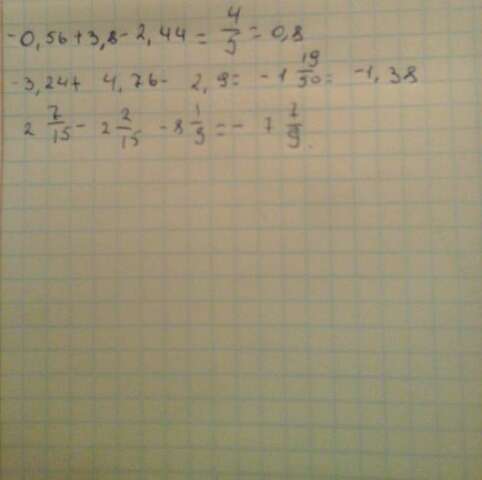 -0,56+3,8-2,44 = 4/5 = 0,8
-3,24+ 4,76- 2,9= -1 19/50 = -1,38
2 7/15 - 2 2/15 - 8 1/9 = - 7 7/9.